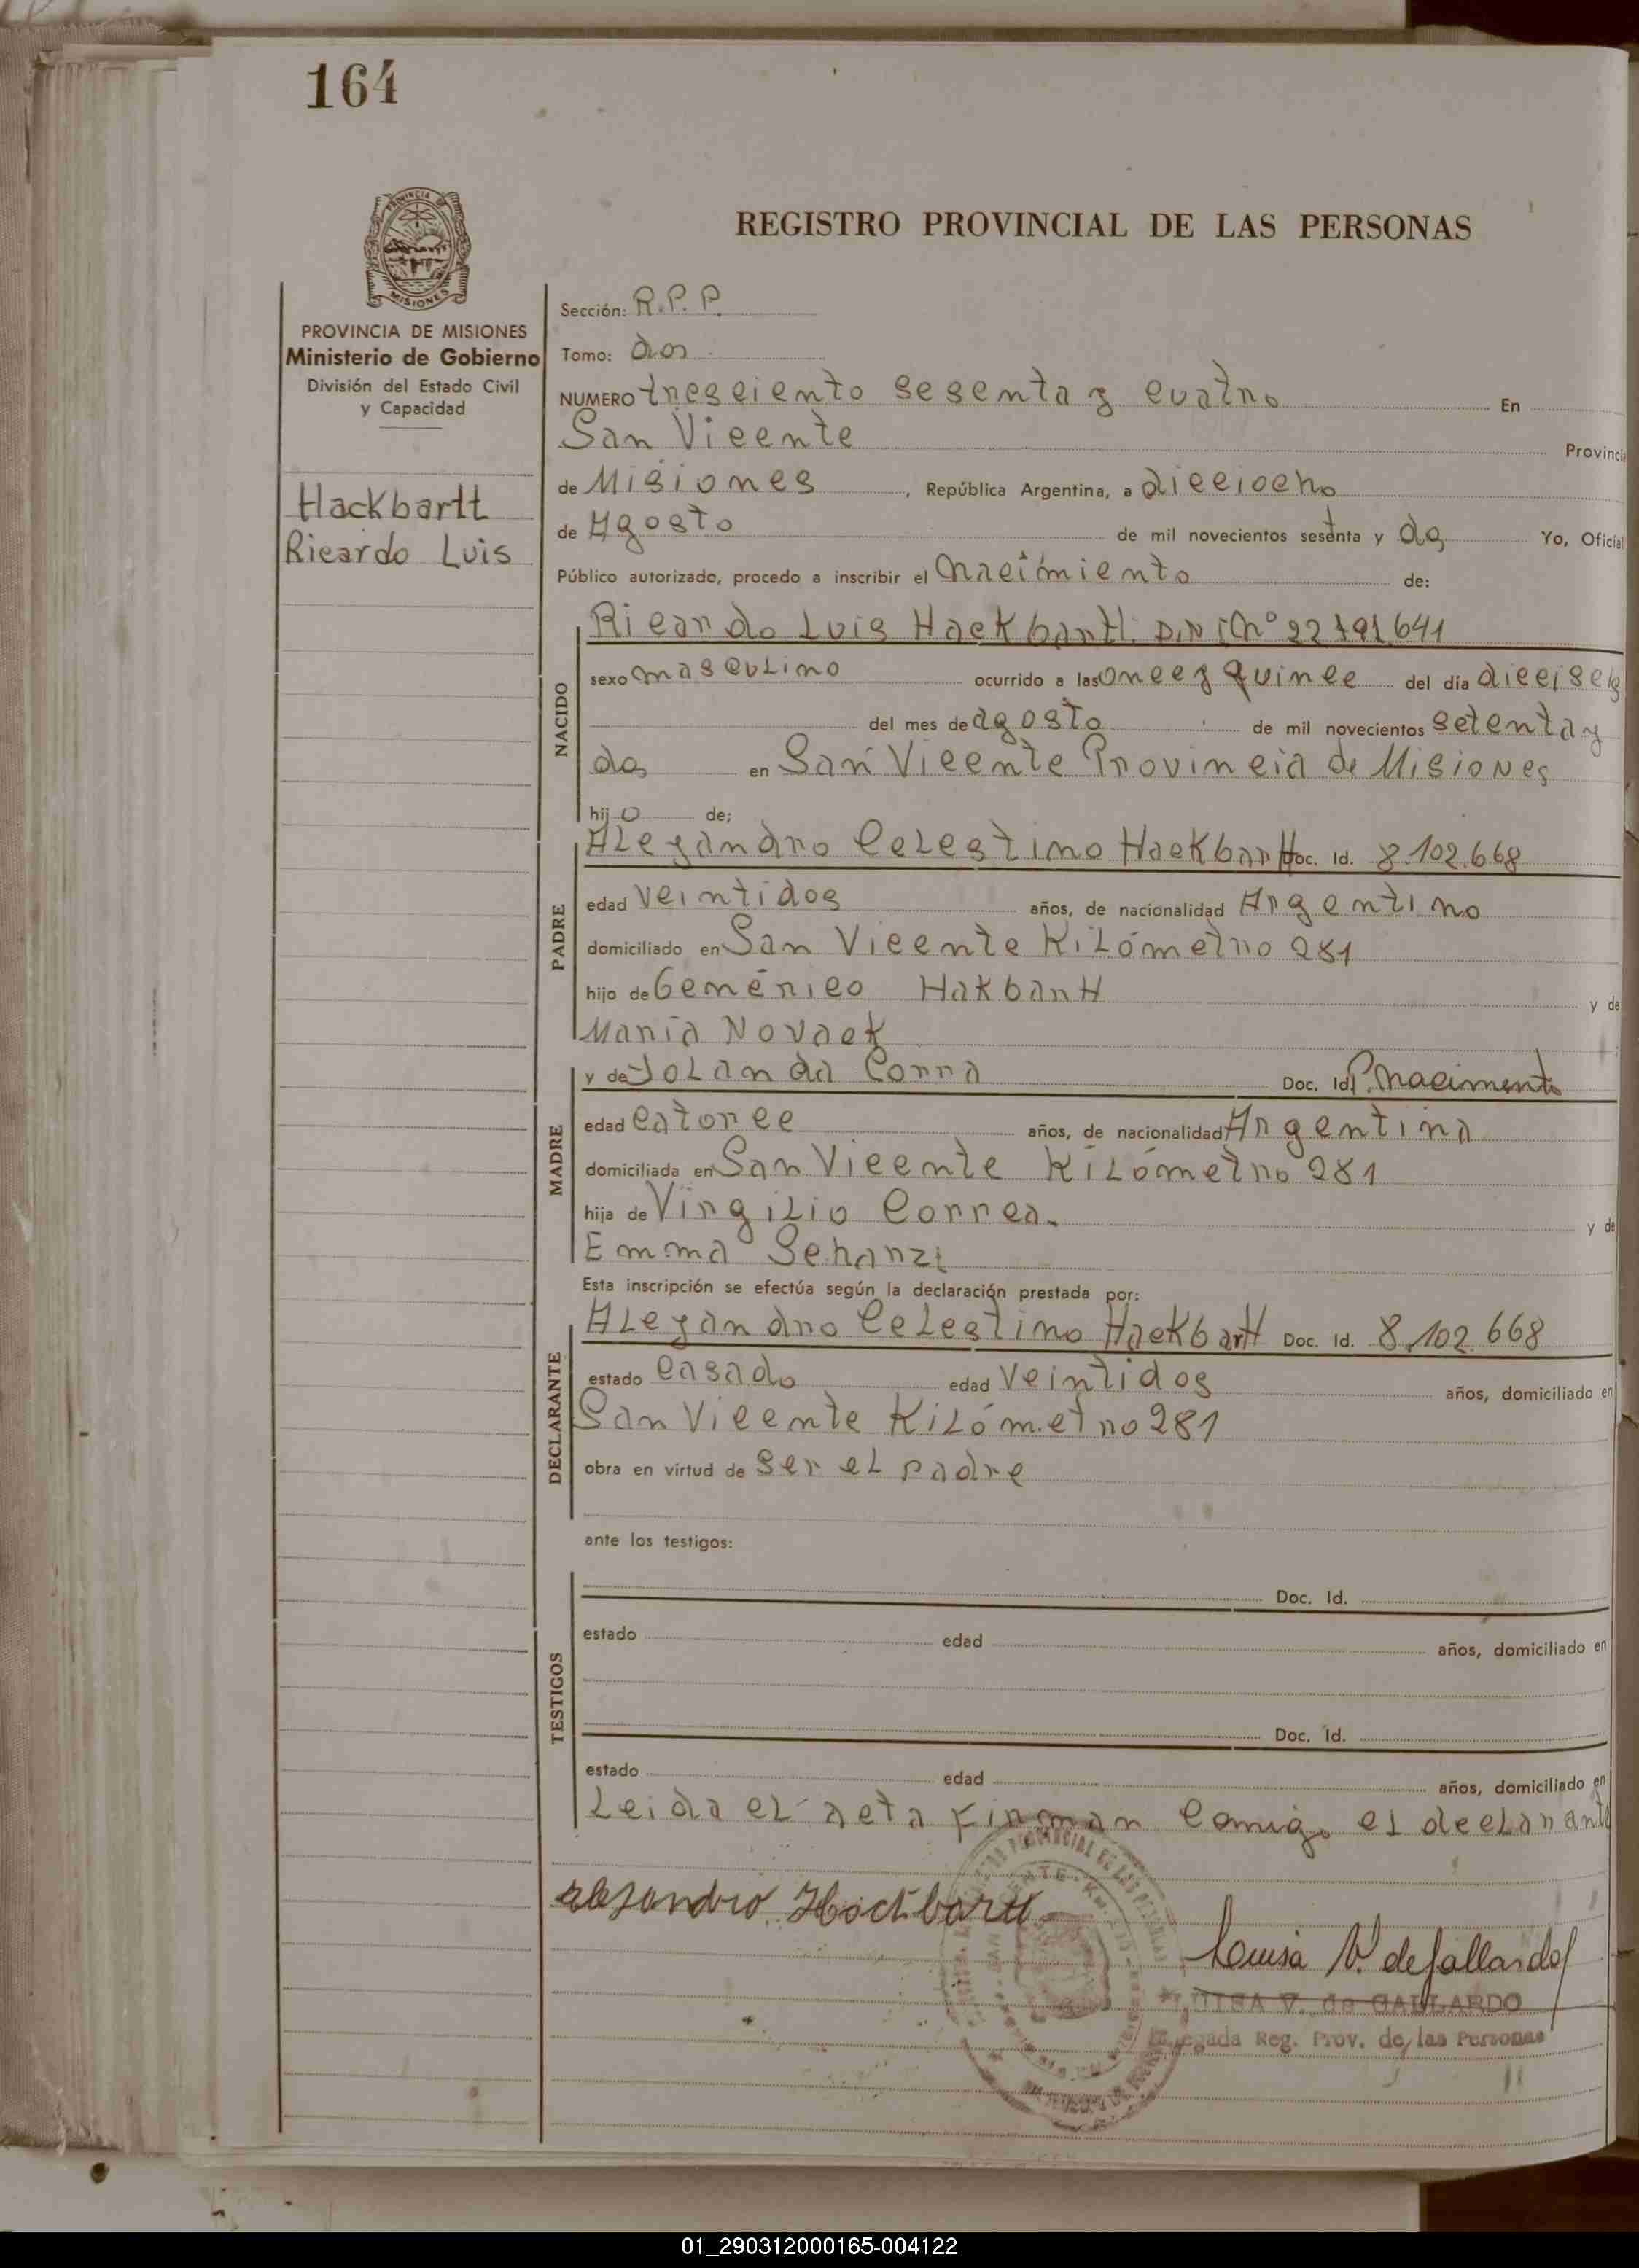 164
REGISTRO PROVINCIAL DE LAS PERSONAS
PROVINCIA DE MISIONES
Ministerio de Gobierno
División del Estado Civil
y Capacidad
Hackbartt
Ricardo Luis
Sección: R.P.P.
Tomo: dos
NUMERO tresciento sesenta y cuatro En
San Vicente Provincia
de Misiones, República Argentina, a dieciocho
de Agosto de mil novecientos sesenta y dos Yo, Oficial
Público autorizado, procedo a inscribir el nacimiento de:
NACIDO
Ricardo Luis Hackbartt. D.N.I Nº 22.791.641
sexo masculino ocurrido a las once y quince del día dieciseis
del mes de agosto de mil novecientos setenta y
dos en San Vicente Provincia de Misiones
hijo de;
PADRE
Aleyandro Celestino Hackbartt Doc. Id. 8.102.668
edad veintidos años, de nacionalidad Argentino
domiciliado en San Vicente Kilómetro 281
hijo de Genérico Hakbartt y de
Maria Novack
MADRE
y de Yolanda Corra Doc. Id. P. Nacimento
edad catorce años, de nacionalidad Argentina
domiciliada en San Vicente Kilómetro 281
hija de Virgilio Correa. y de
Emma Schanzi
Esta inscripción se efectúa según la declaración prestada por:
DECLARANTE
Aleyandro Celestino Hackbartt Doc. Id. 8.102.668
estado casado edad veintidos años, domiciliado en
San Vicente Kilómetro 281
obra en virtud de ser el padre
ante los testigos:
TESTIGOS
Doc. Id.
estado edad años, domiciliado en
Doc. Id.
estado edad años, domiciliado en
Leida el acta firman comigo el declarante
Alejandro Hackbartt
Luisa V. de Gallardo
LUISA V. de GALLARDO
Delegada Reg. Prov. de las Personas
01_290312000165-004122